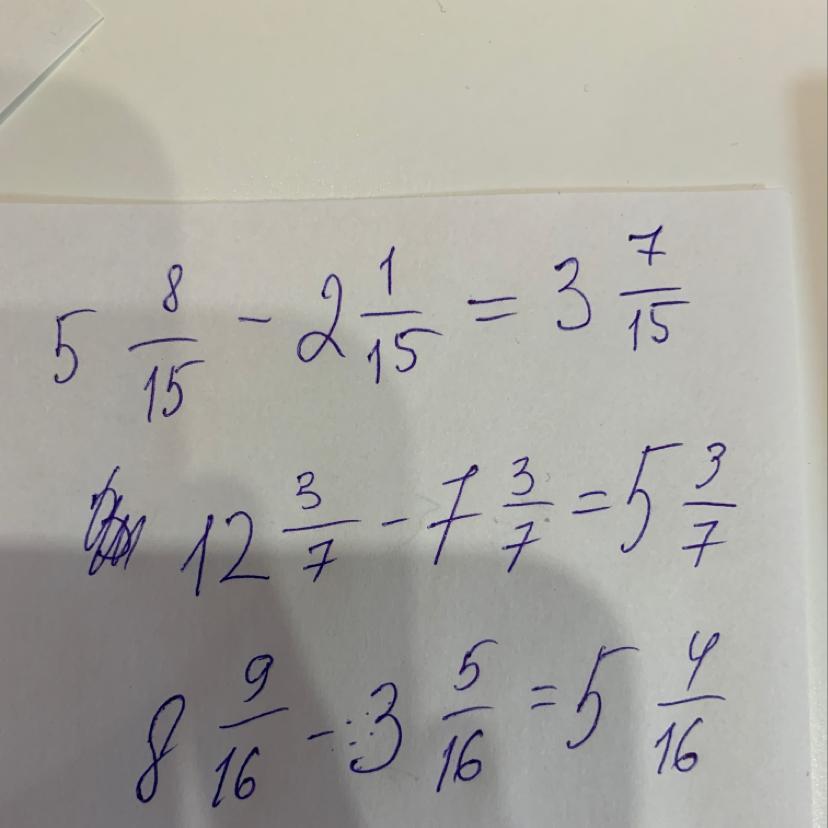 5 8/15 - 2 1/15 = 3 7/15
12 3/7 - 7 3/7 = 5 3/7
8 9/16 - 3 5/16 = 5 4/16